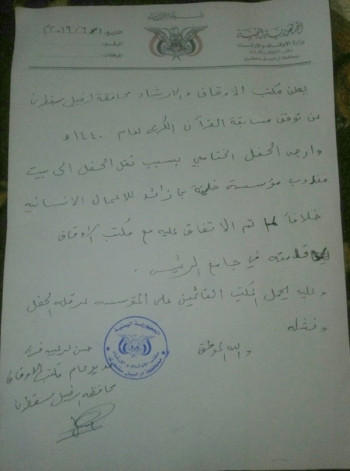 الجمهورية اليمنية
وزارة الأوقاف والإرشاد
التاريخ
يعلن مكتب الاوقاف والارشاد محافظة ارخبيل سقطرى
عن توقف مسابقة القرآن الكريم لعام ١٤٤٠هـ
الحفل الختامي بسبب نقل الحفل الى بيت
مندوب مؤسسة خليفة بن زائد للاعمال الانسانيه
خلافا لما تم الاتفاق عليه مع مكتب الاوقاف
في جامع الرئيس.
وعليه يحمل المكتب القائمين على المؤسسه عرقلة الحفل
وفشله
والله الموفق
مدير عام مكتب الاوقاف
محافظة ارخبيل سقطرى